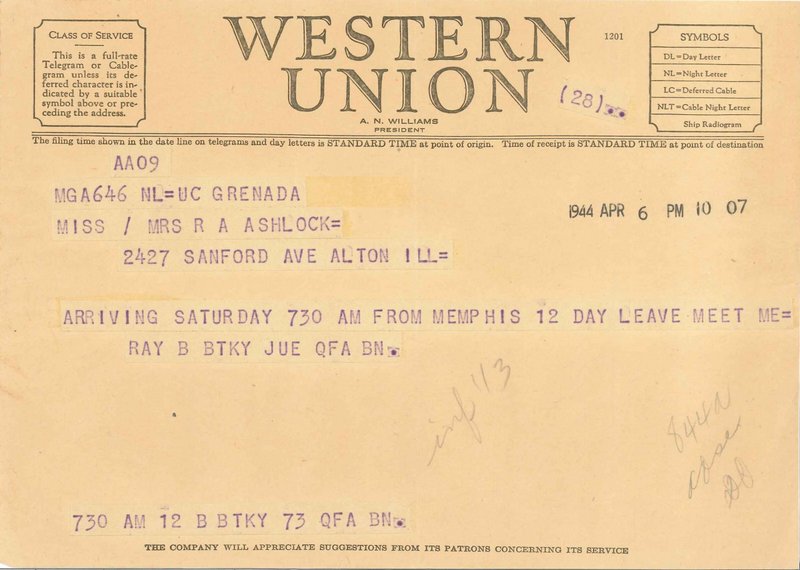 CLASS OF SERVICE
This is a full-rate
Telegram or Cable-
gram unless its de-
ferred character is in-
dicated by a suitable
symbol above or pre-
ceding the address.
WESTERN
UNION
A. N. WILLIAMS
PRESIDENT
1201
(28)
SYMBOLS
DL=Day Letter
NL=Night Letter
LC=Deferred Cable
NLT=Cable Night Letter
Ship Radiogram
The filing time shown in the date line on telegrams and day letters is STANDARD TIME at point of origin. Time of receipt is STANDARD TIME at point of destination
AA09
MGA646 NL=UC GRENADA
1944 APR 6 PM 10 07
MISS / MRS R A ASHLOCK=
2427 SANFORD AVE ALTON ILL=
ARRIVING SATURDAY 730 AM FROM MEMPHIS 12 DAY LEAVE MEET ME=
RAY B BTKY JUE QFA BN.
730 AM 12 B BTKY 73 QFA BN.
THE COMPANY WILL APPRECIATE SUGGESTIONS FROM ITS PATRONS CONCERNING ITS SERVICE